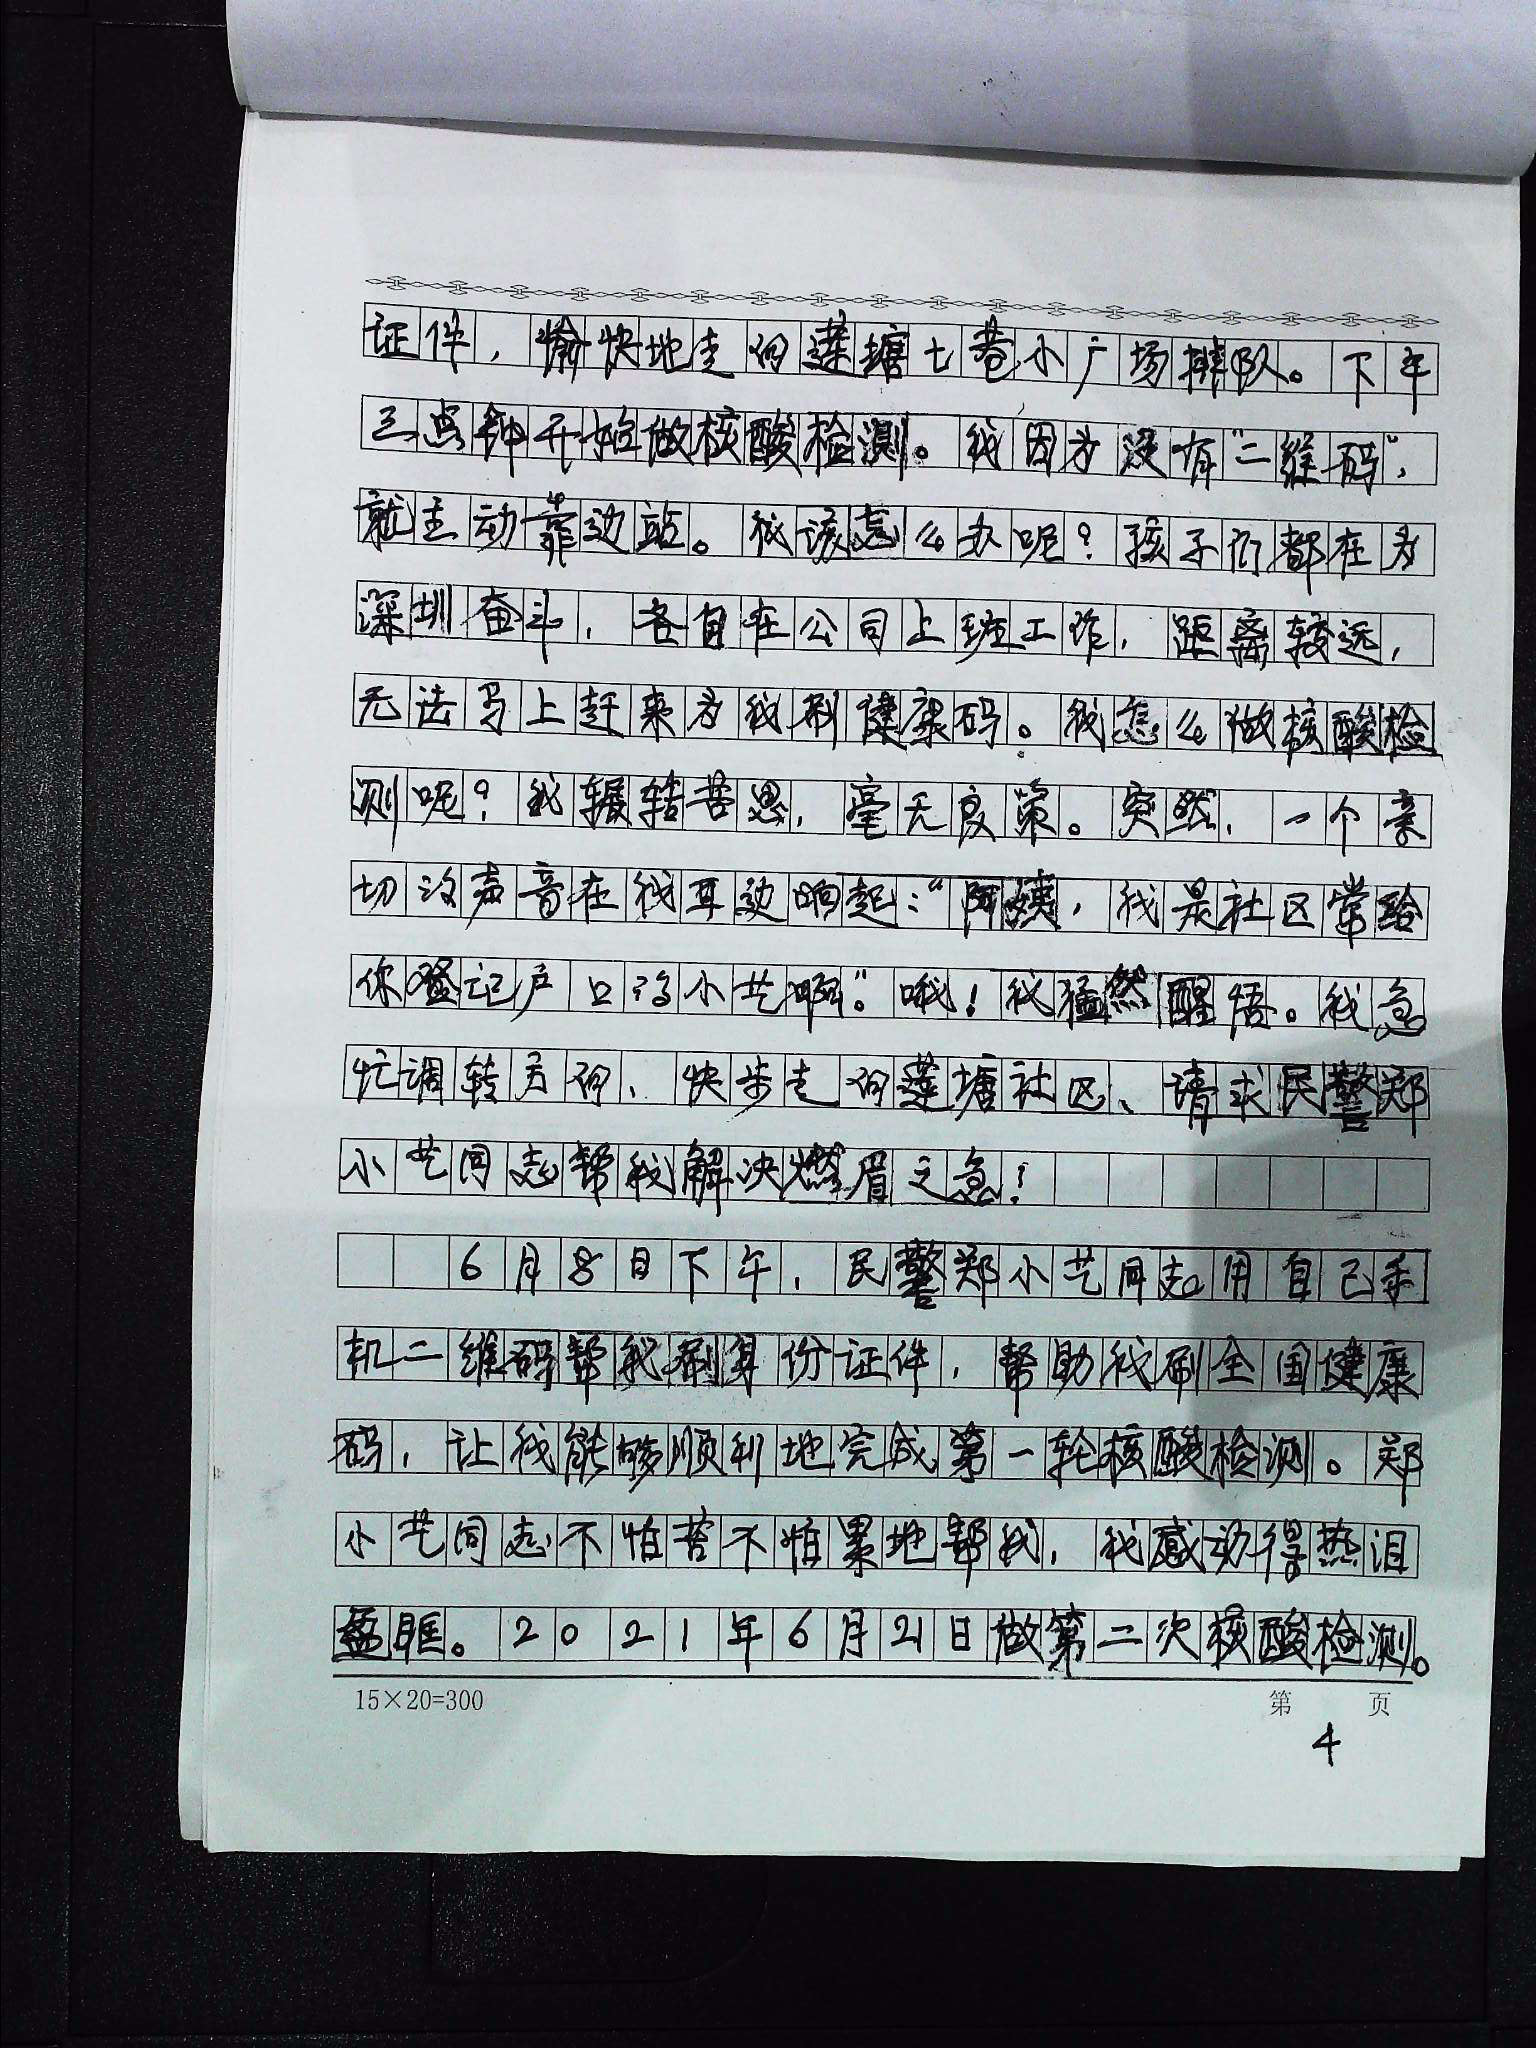 证件，愉快地走向莲塘七巷小广场排队。下午
三点钟开始做核酸检测。我因为没有“二维码”，
就主动靠边站。我该怎么办呢？孩子们都在为
深圳奋斗，各自在公司上班工作，距离较远，
无法马上赶来为我刷健康码。我怎么做核酸检
测呢？我辗转苦思，毫无良策。突然，一个亲
切的声音在我耳边响起：“阿姨，我是社区常给
你登记户口的小艺啊。”哦！我猛然醒悟。我急
忙调转方向，快步走向莲塘社区、请求民警郑
小艺同志帮我解决燃眉之急！
6月8日下午，民警郑小艺同志用自己手
机二维码帮我刷身份证件，帮助我刷全国健康
码，让我能够顺利地完成第一轮核酸检测。郑
小艺同志不怕苦不怕累地帮我，我感动得热泪
盈眶。2021年6月21日做第二次核酸检测。
15×20=300 第 页
4